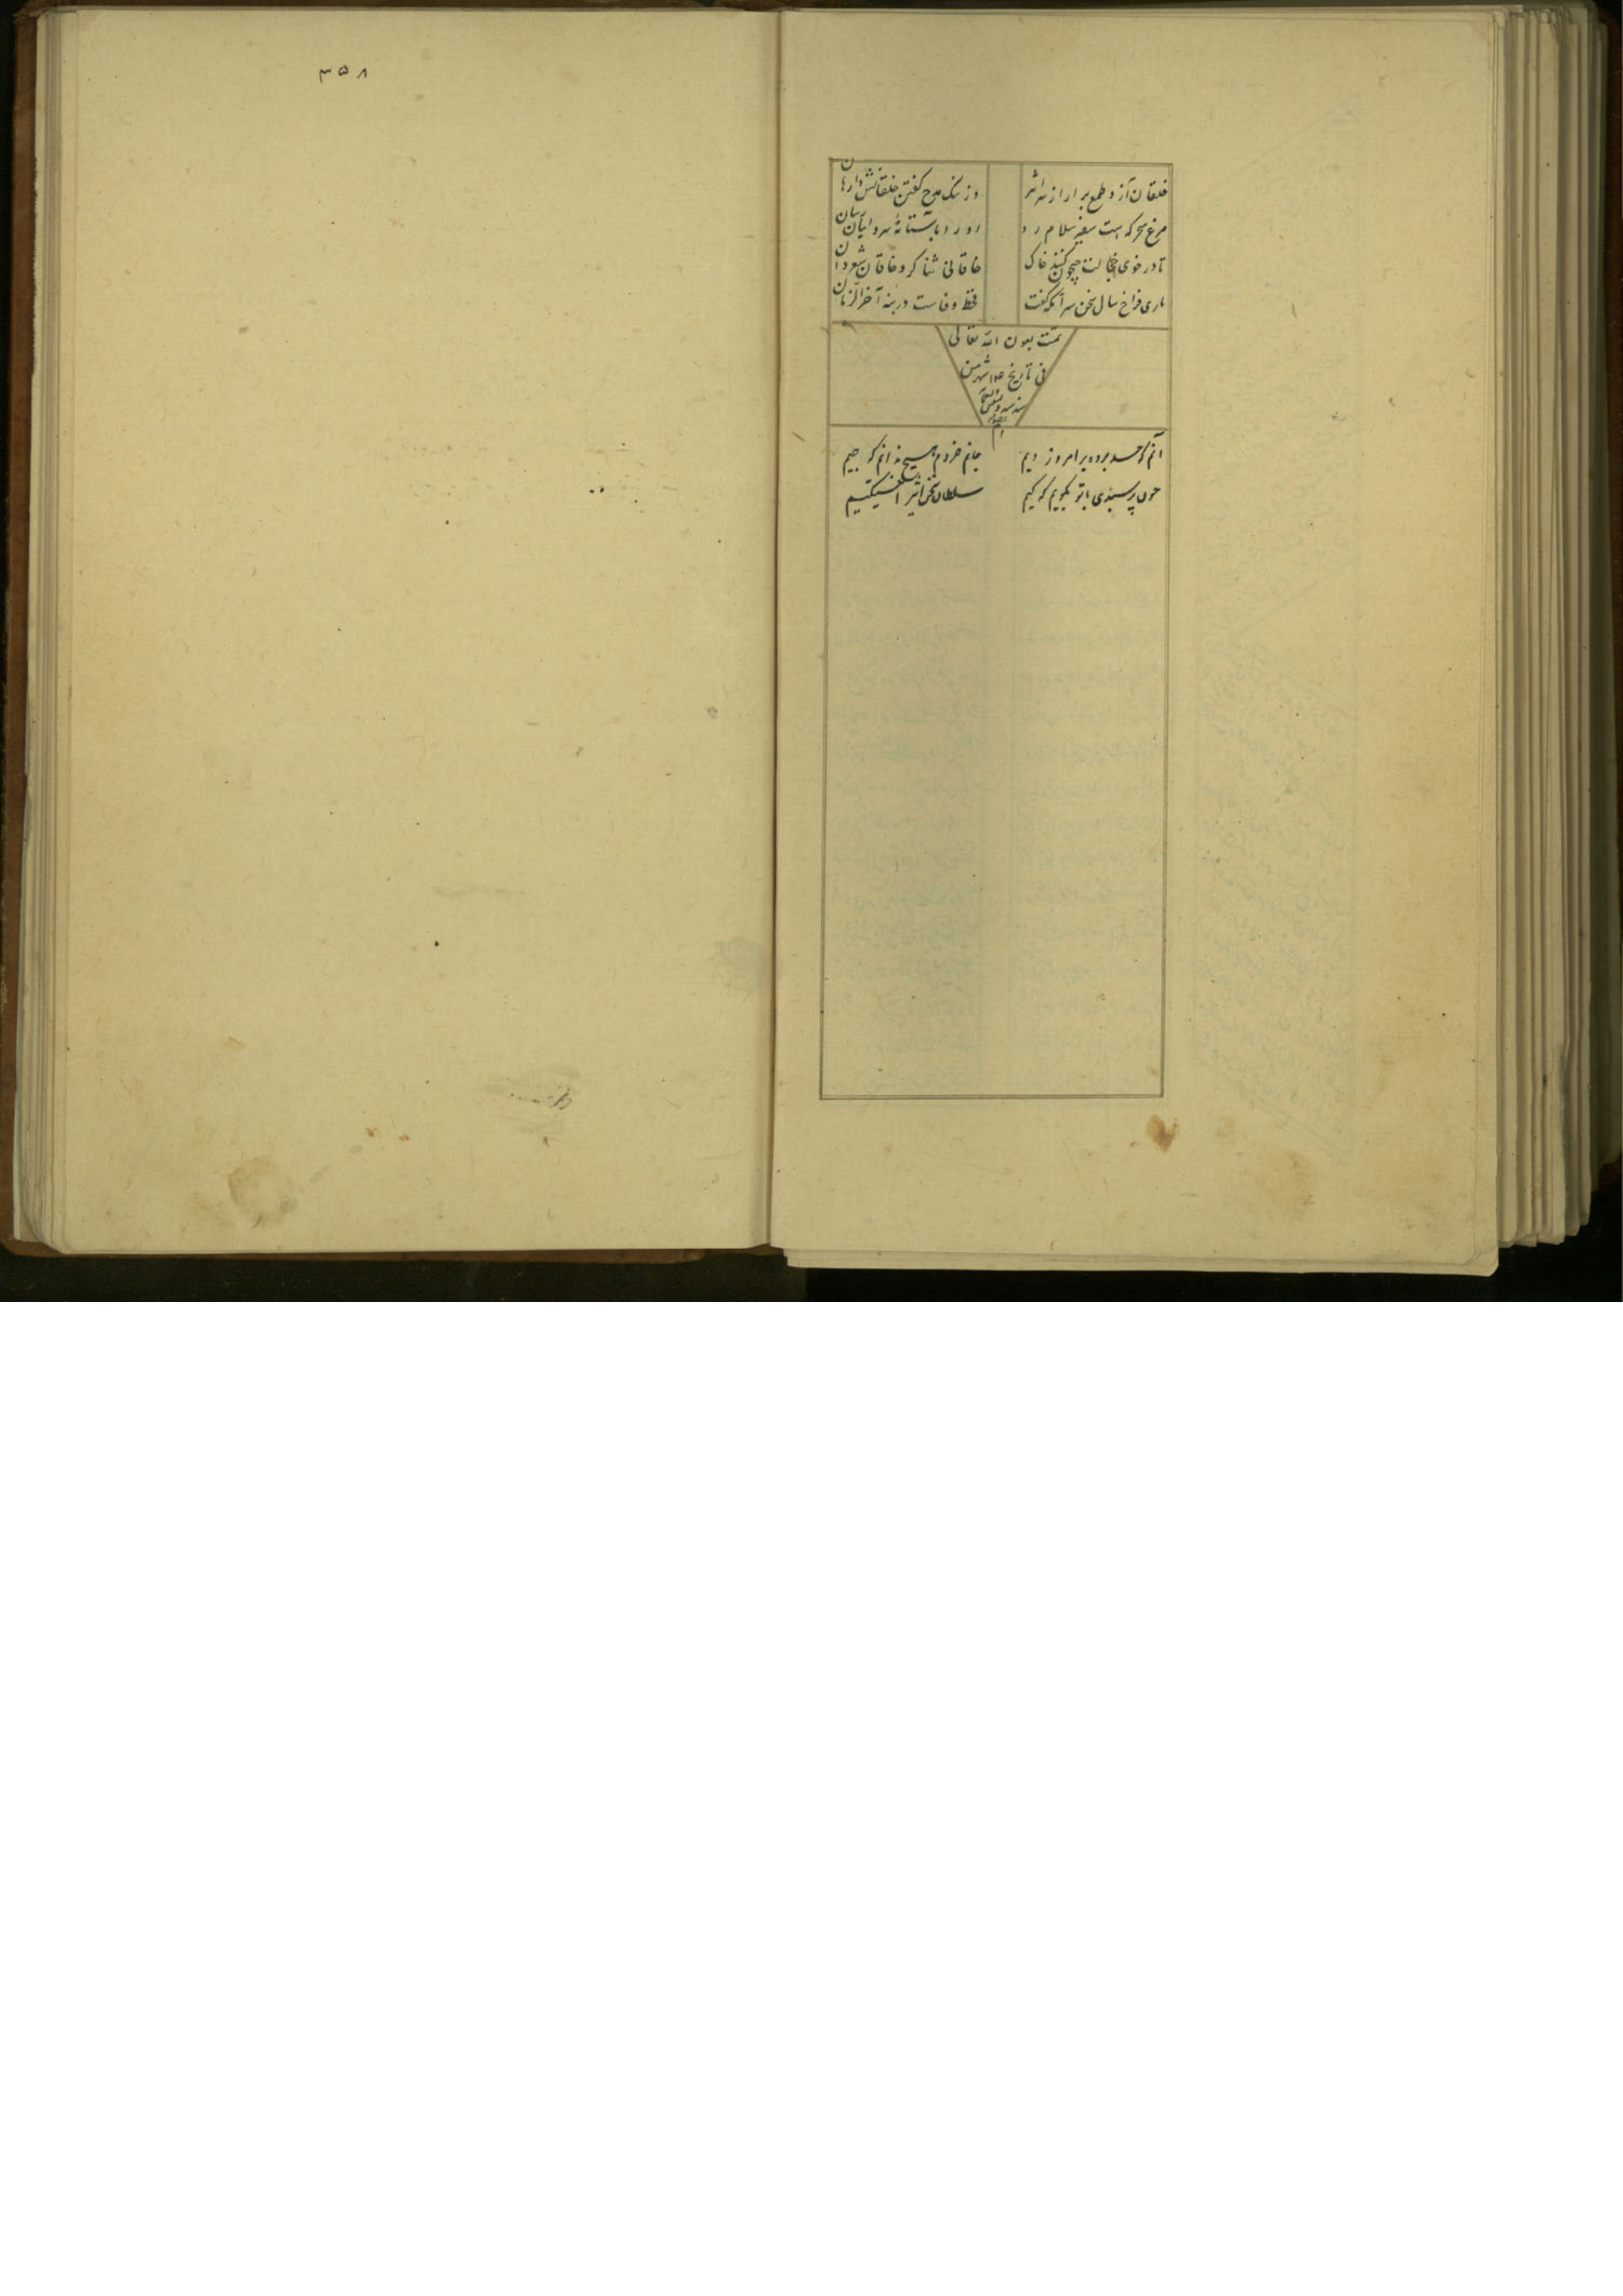 ۳۵۸
خلقان آز و طمع بر ار از سر اثر
وز ننک مدح کفتن خلقانش وارهان
مرغ سحر که هست سفیر سلام
او را بآستانهٔ
تا در خوی خجالت کنند خاک
خاقانی ثنا کر و خاقان شعر دان
باری فراخ سال سخن سر آنکه کفت
قحط وفاست در بنه آخر الزمان
تمت بعون الله تعالی
فی تاریخ شهر من
آنم که حسد برده بر امروز دیم
جانم خردم هیچ ندانم که چیم
چون پرسیدی با تو بکویم که کیم
سلطان سخن اثیر اخسیکتیم